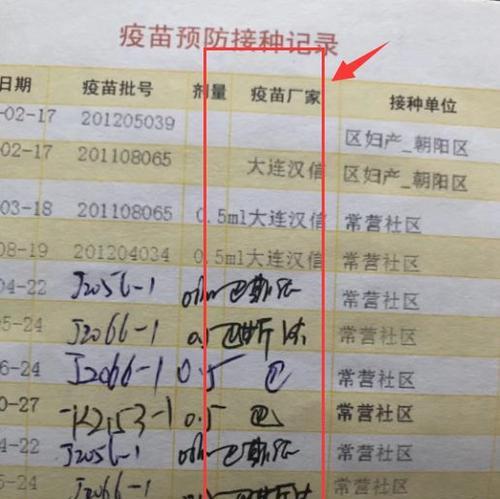 疫苗预防接种记录
日期 疫苗批号 剂量 疫苗厂家 接种单位
02-17 201205039 区妇产_朝阳区
02-17 201108065 大连汉信 区妇产_朝阳区
03-18 201108065 0.5ml 大连汉信 常营社区
08-19 201204034 0.5ml 大连汉信 常营社区
04-22 J2056-1 巴斯德 常营社区
05-24 J2066-1 0.5 巴斯德 常营社区
6-24 J2066-1 0.5 巴 常营社区
0-27 K2153-1 0.5 巴 常营社区
04-22 J2056-1 巴斯德 常营社区
5-24 常营社区